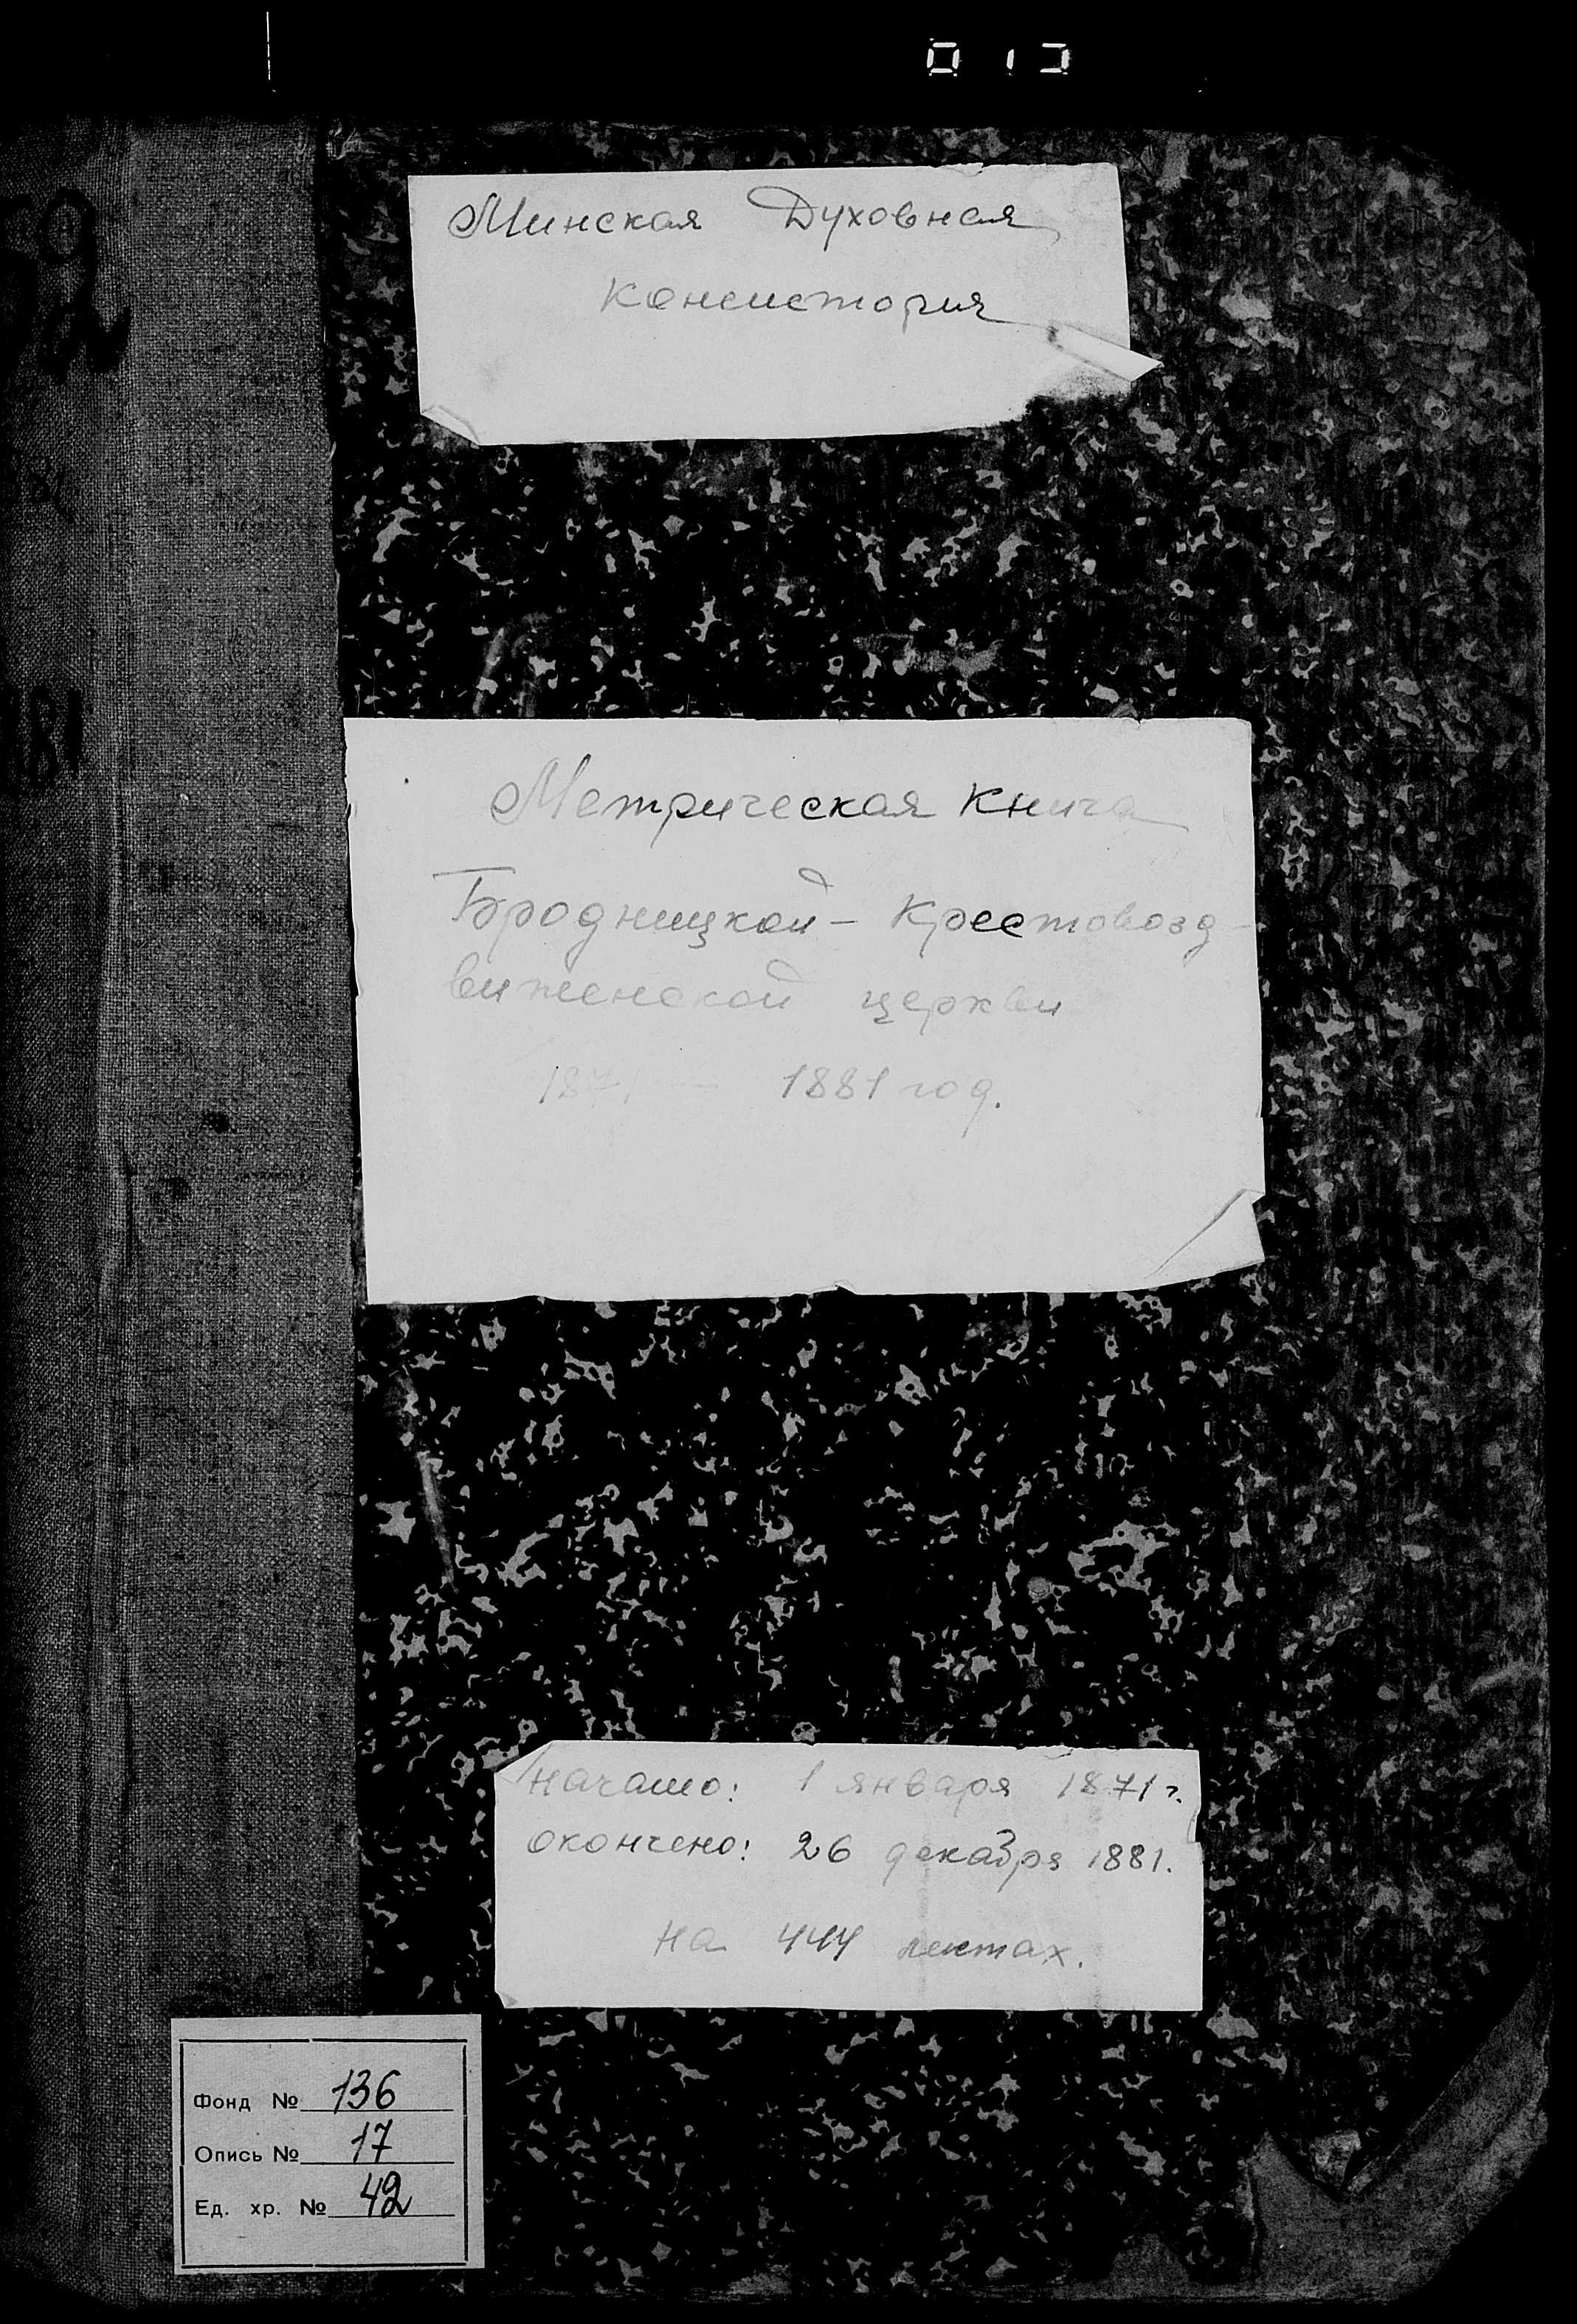 Минская Духовная
консистория
Метрическая книга
Бродницкой - Крестовозд-
виженской церкви
1871 — 1881 год.
Начато: 1 января 1871 г.
окончено: 26 декабря 1881.
На 444 листах.
Фонд № 136
Опись № 17
Ед. хр. № 42